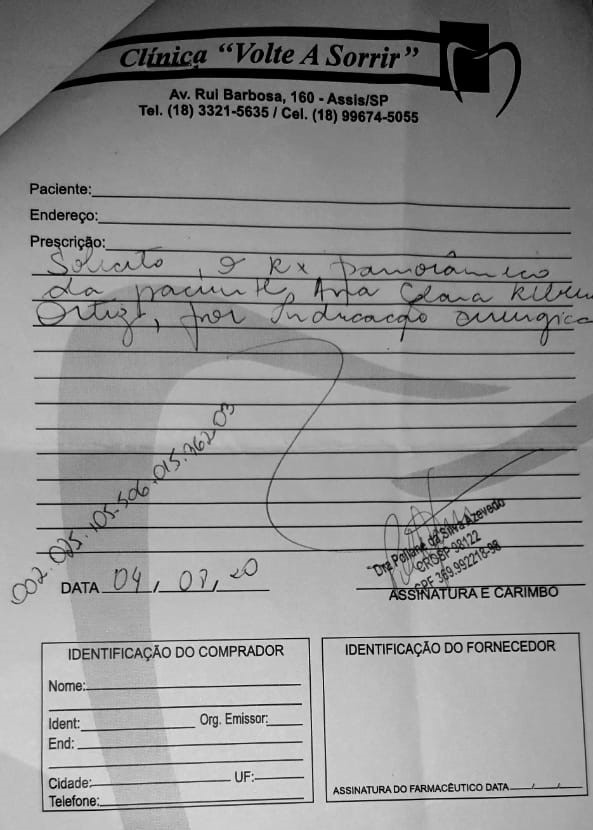 Clínica “Volte A Sorrir”
Av. Rui Barbosa, 160 - Assis/SP
Tel. (18) 3321-5635 / Cel. (18) 99674-5055
Paciente:
Endereço:
Prescrição:
Solicito, o Rx panorâmico
da paciente, Ana Clara
Ortiz, por Indicação cirurgica
002.025.105.506.015.362.03
Dra Poliane da Silva Azevedo
CROSP 98122
CPF 369.992218-98
DATA 04, 07, 20
ASSINATURA E CARIMBO
IDENTIFICAÇÃO DO COMPRADOR
Nome:
Ident: Org. Emissor:
End:
Cidade: UF:
Telefone:
IDENTIFICAÇÃO DO FORNECEDOR
ASSINATURA DO FARMACÊUTICO DATA / /